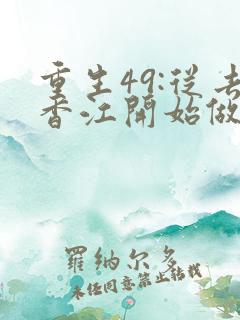 重生49:從去
香江開始做
羅納尔多
未经同意禁止转载